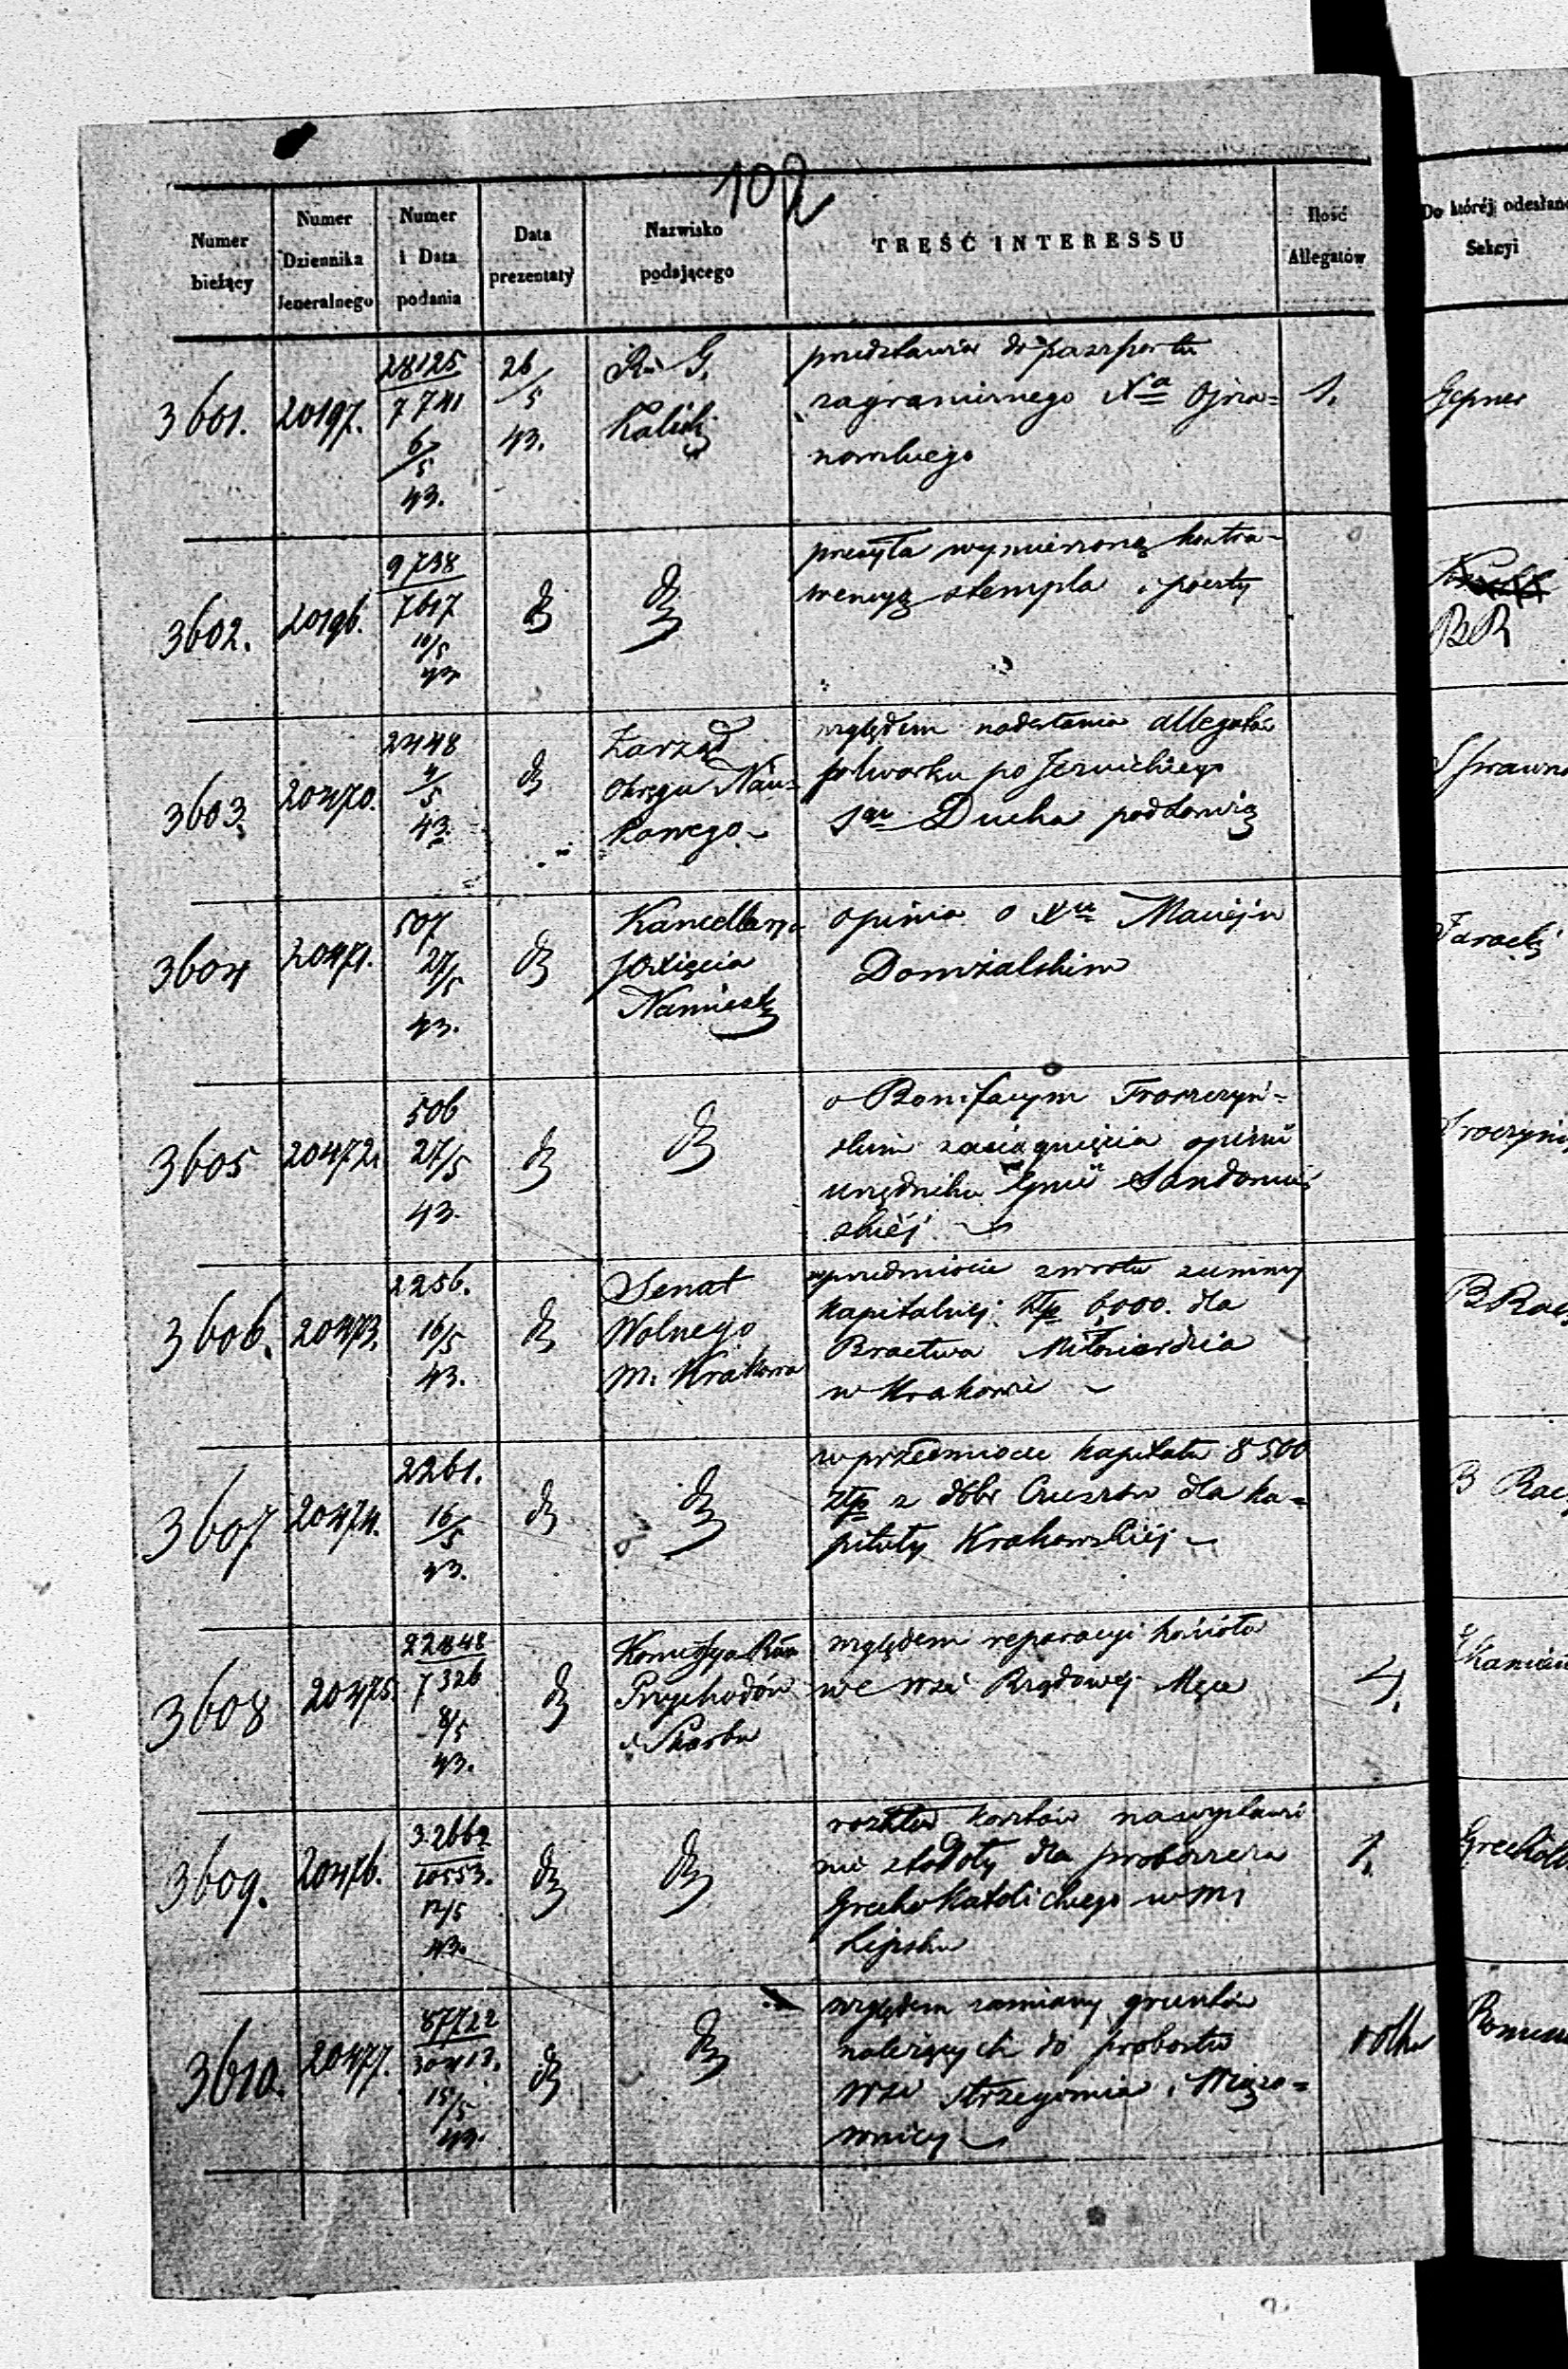 102
Numer bieżący
Numer Dziennika Jeneralnego
Numer i Data podania
Data prezentaty
Nazwisko podającego
TREŚĆ INTERESSU
Ilość Allegatów
Do któréj odesłano Sekcyi
3601. 20197. 28125 7741 6/5 43. 26/5 43. R. G. Kaliski
przedstawia do paszportu
zagranicznego Xa Ojrza=
nowskiego
1. Gepner
3602. 20196. 9738 7617 10/5 43 dt dt
przesyła wymierzoną kontra-
wencyą stempla i poczty
BR
3603. 20470. 2448 4/5 43. dt
Zarząd
Okręgu Nau=
kowego
względem nadesłania allegatów
folwarku po Jezuickiego
Sgo Ducha pod Łowicz
Sprawn
3604 20471. 507 27/5 43. dt
Kancellarya
JO Xięcia
Namiest
opinia o Xu Macieju
Domżalskim
Jaracki
3605 20472. 506 27/5 43. dt dt
o Bonifacym Troczyń-
skim zaciągnięcia opinii
urzędnika Gnii Sandomir
skiéj
Troczyńs
3606. 20473. 2256. 16/5 43. dt
Senat
Wolnego
m. Krakowa
w przedmiocie zwrotu summy
kapitalnej Złp 6000. dla
Bractwa Miłosierdzia
w Krakowie
B Rac
3607 20474. 2261. 16/5 43. dt dt
w przedmiocie kapitału 8500
złp z dóbr Cruszów dla ka=
pituły Krakowskiéj
B Rac
3608 20475. 22848 7326 8/5 43. dt
Komissya Rzą
Przychodów
i Skarbu
względem reparacyi kościoła
we wsi Rządowej Męce
4.
3609. 20476. 32662 10553. 12/5 43. dt dt
rozkład kosztów na wystawie
nie stodoły dla proboszcza
Grecko Katolickiego w m.
Lipsku
1.
3610. 20477. 87722 30413. 15/5 43. dt dt
względem zamiany gruntów
należących do probostw
wsi Strzegomia i Wiązo=
wnicy